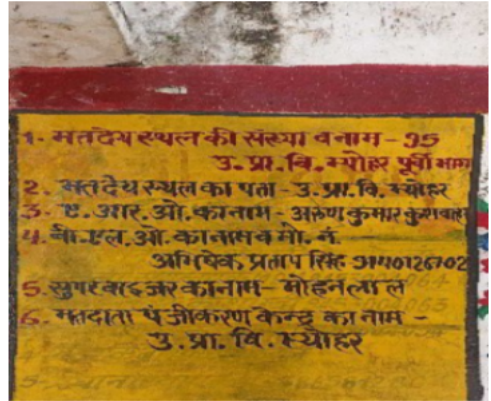 1- मतदेय स्थल की संख्या व नाम - 95
उ. प्रा. वि. म्योहर पूर्वी भाग
2. मतदेय स्थल का पता - उ. प्रा. वि. म्योहर
3- ए. आर. ओ. का नाम - अरुण कुमार
4. बी. एल. ओ. का नाम व मो. नं.
अभिषेक प्रताप सिंह
5. सुपरवाइजर का नाम - मोहनलाल
6. मतदाता पंजीकरण केन्द्र का नाम -
उ. प्रा. वि. म्योहर